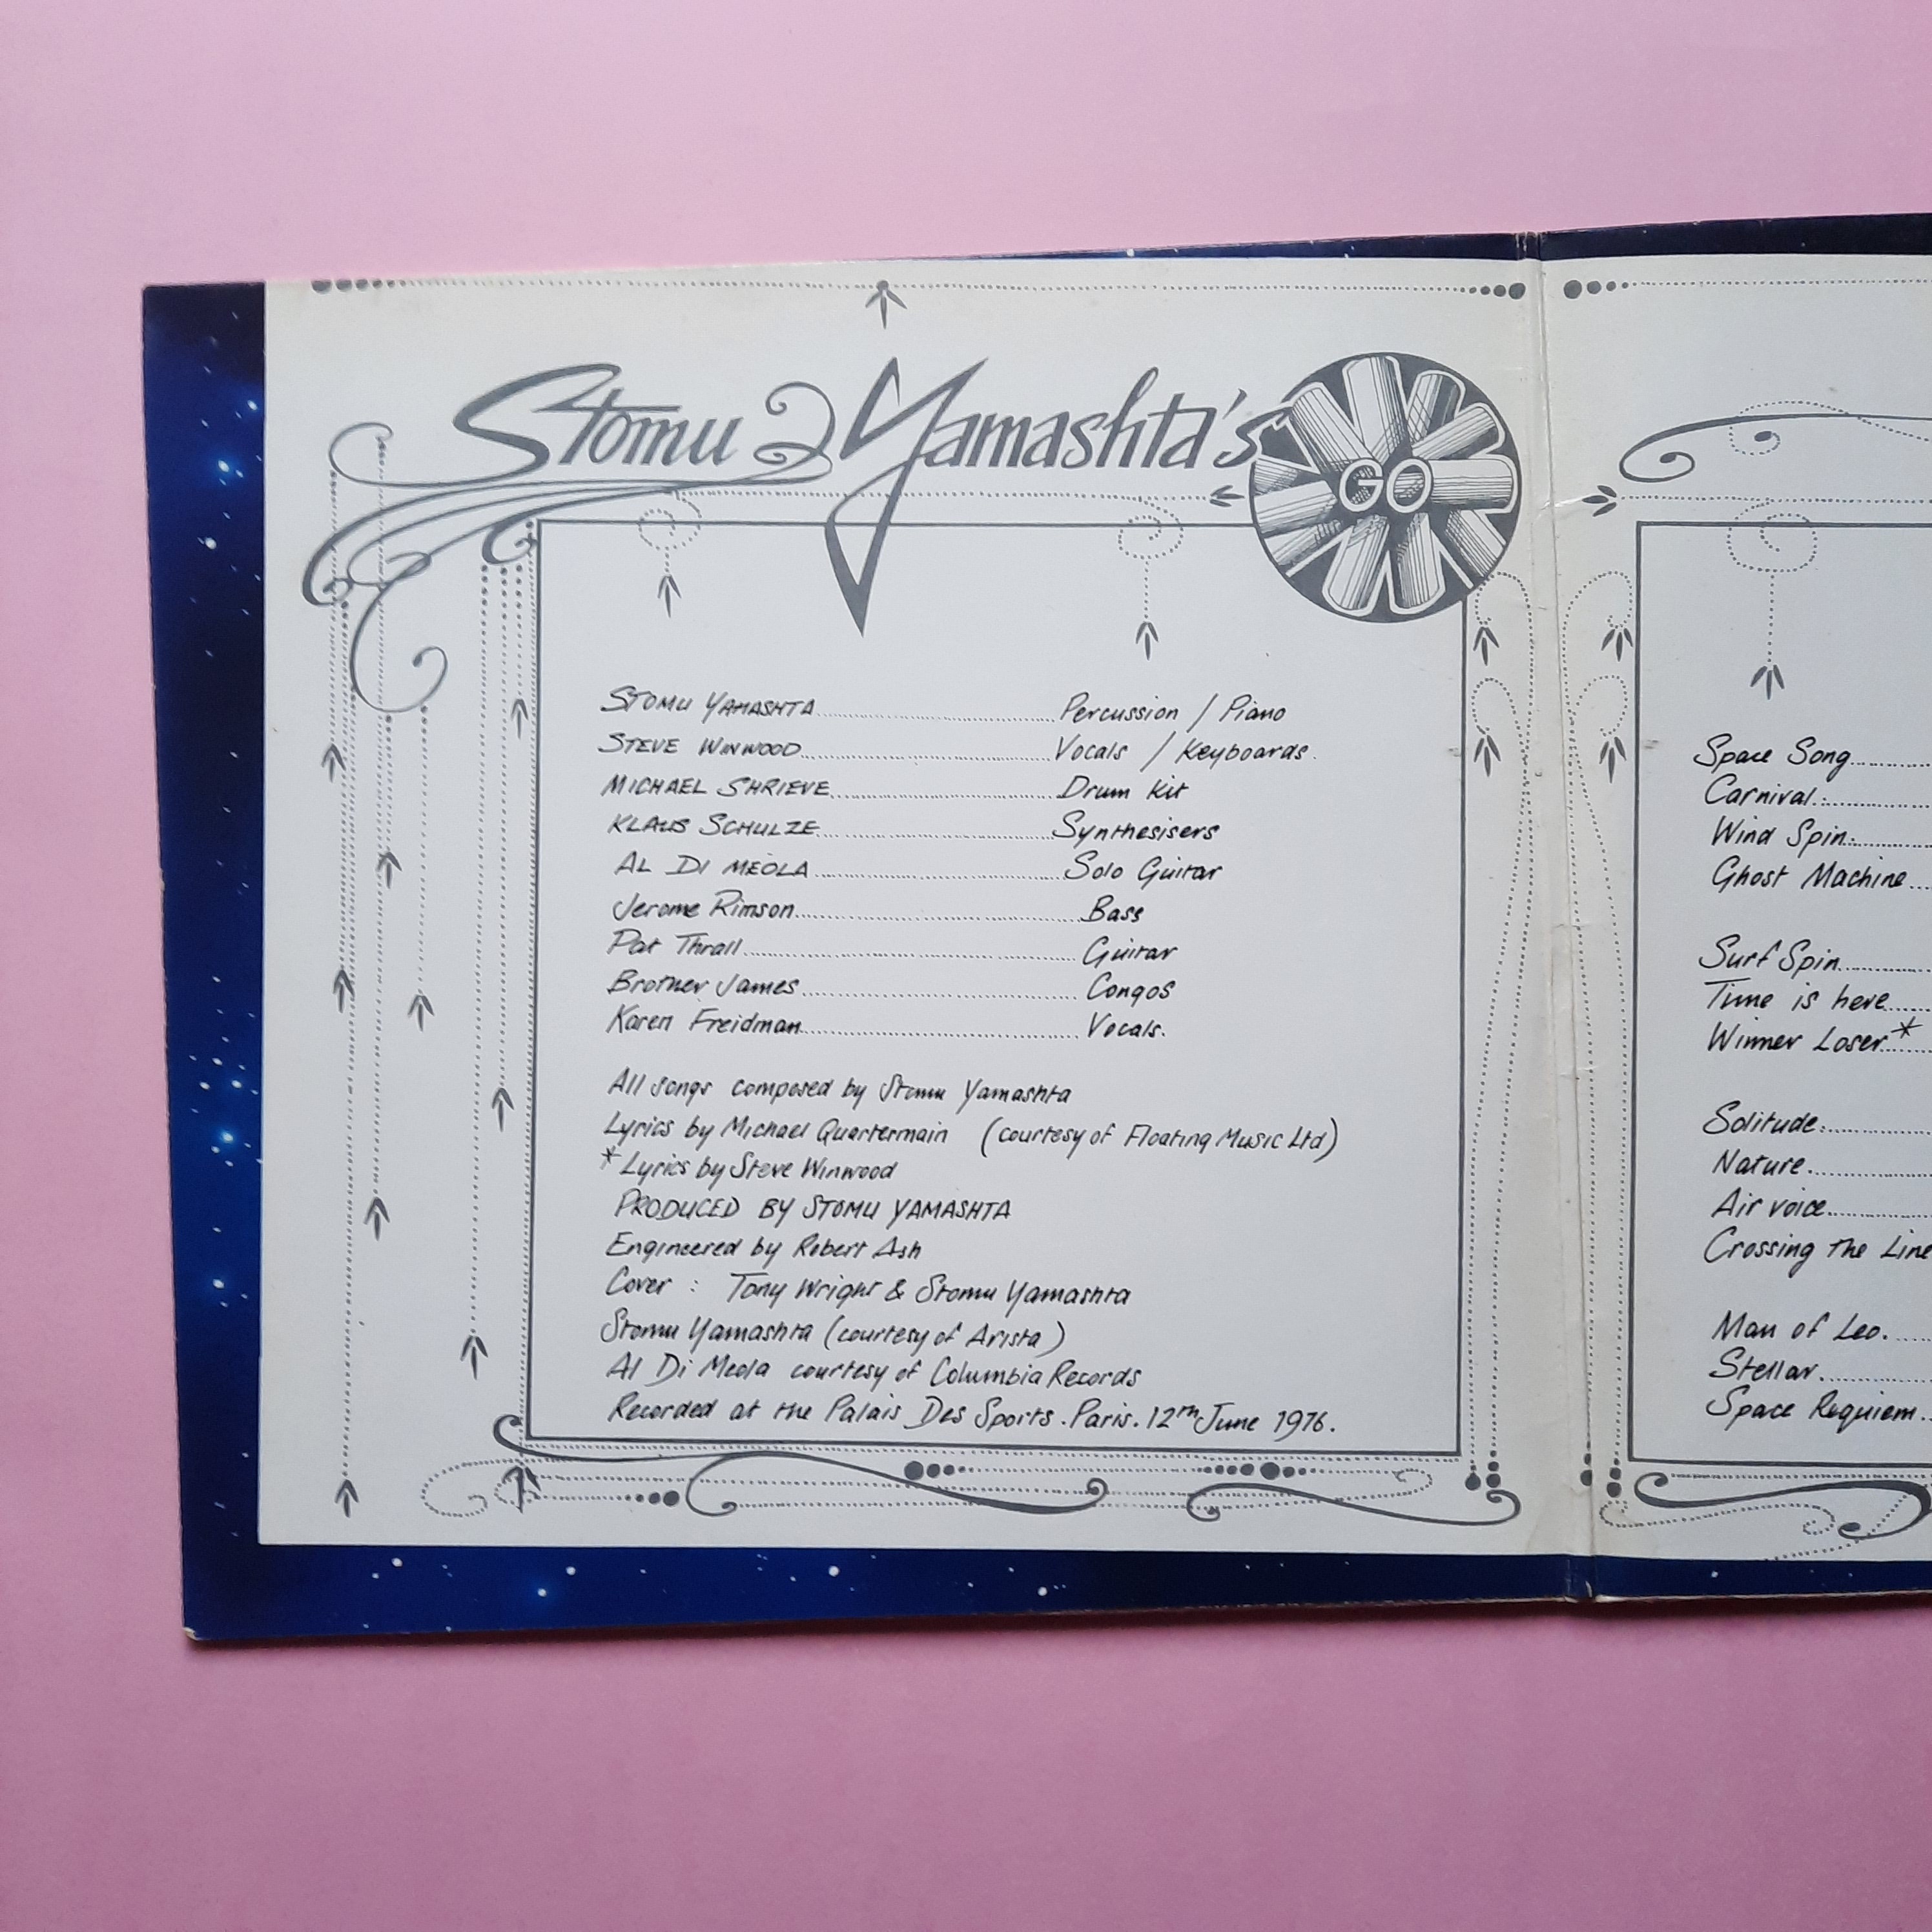 Stomu Yamashta's GO
STOMU YAMASHTA Percussion / Piano
STEVE WINWOOD Vocals / Keyboards.
MICHAEL SHRIEVE Drum Kit
KLAUS SCHULZE Synthesisers
AL DI MEOLA Solo Guitar
Jerome Rimson Bass
Pat Thrall Guitar
Brother James Congos
Karen Freidman Vocals.
All songs composed by Stomu Yamashta
Lyrics by Michael Quartermain (courtesy of Floating Music Ltd)
* Lyrics by Steve Winwood
PRODUCED BY STOMU YAMASHTA
Engineered by Robert Ash
Cover : Tony Wright & Stomu Yamashta
Stomu Yamashta (courtesy of Arista)
Al Di Meola courtesy of Columbia Records
Recorded at the Palais Des Sports. Paris. 12th June 1976.
Space Song
Carnival.
Wind Spin.
Ghost Machine
Surf Spin
Time is here
Winner Loser*
Solitude.
Nature.
Air voice
Crossing the Line
Man of Leo.
Stellar.
Space Requiem.